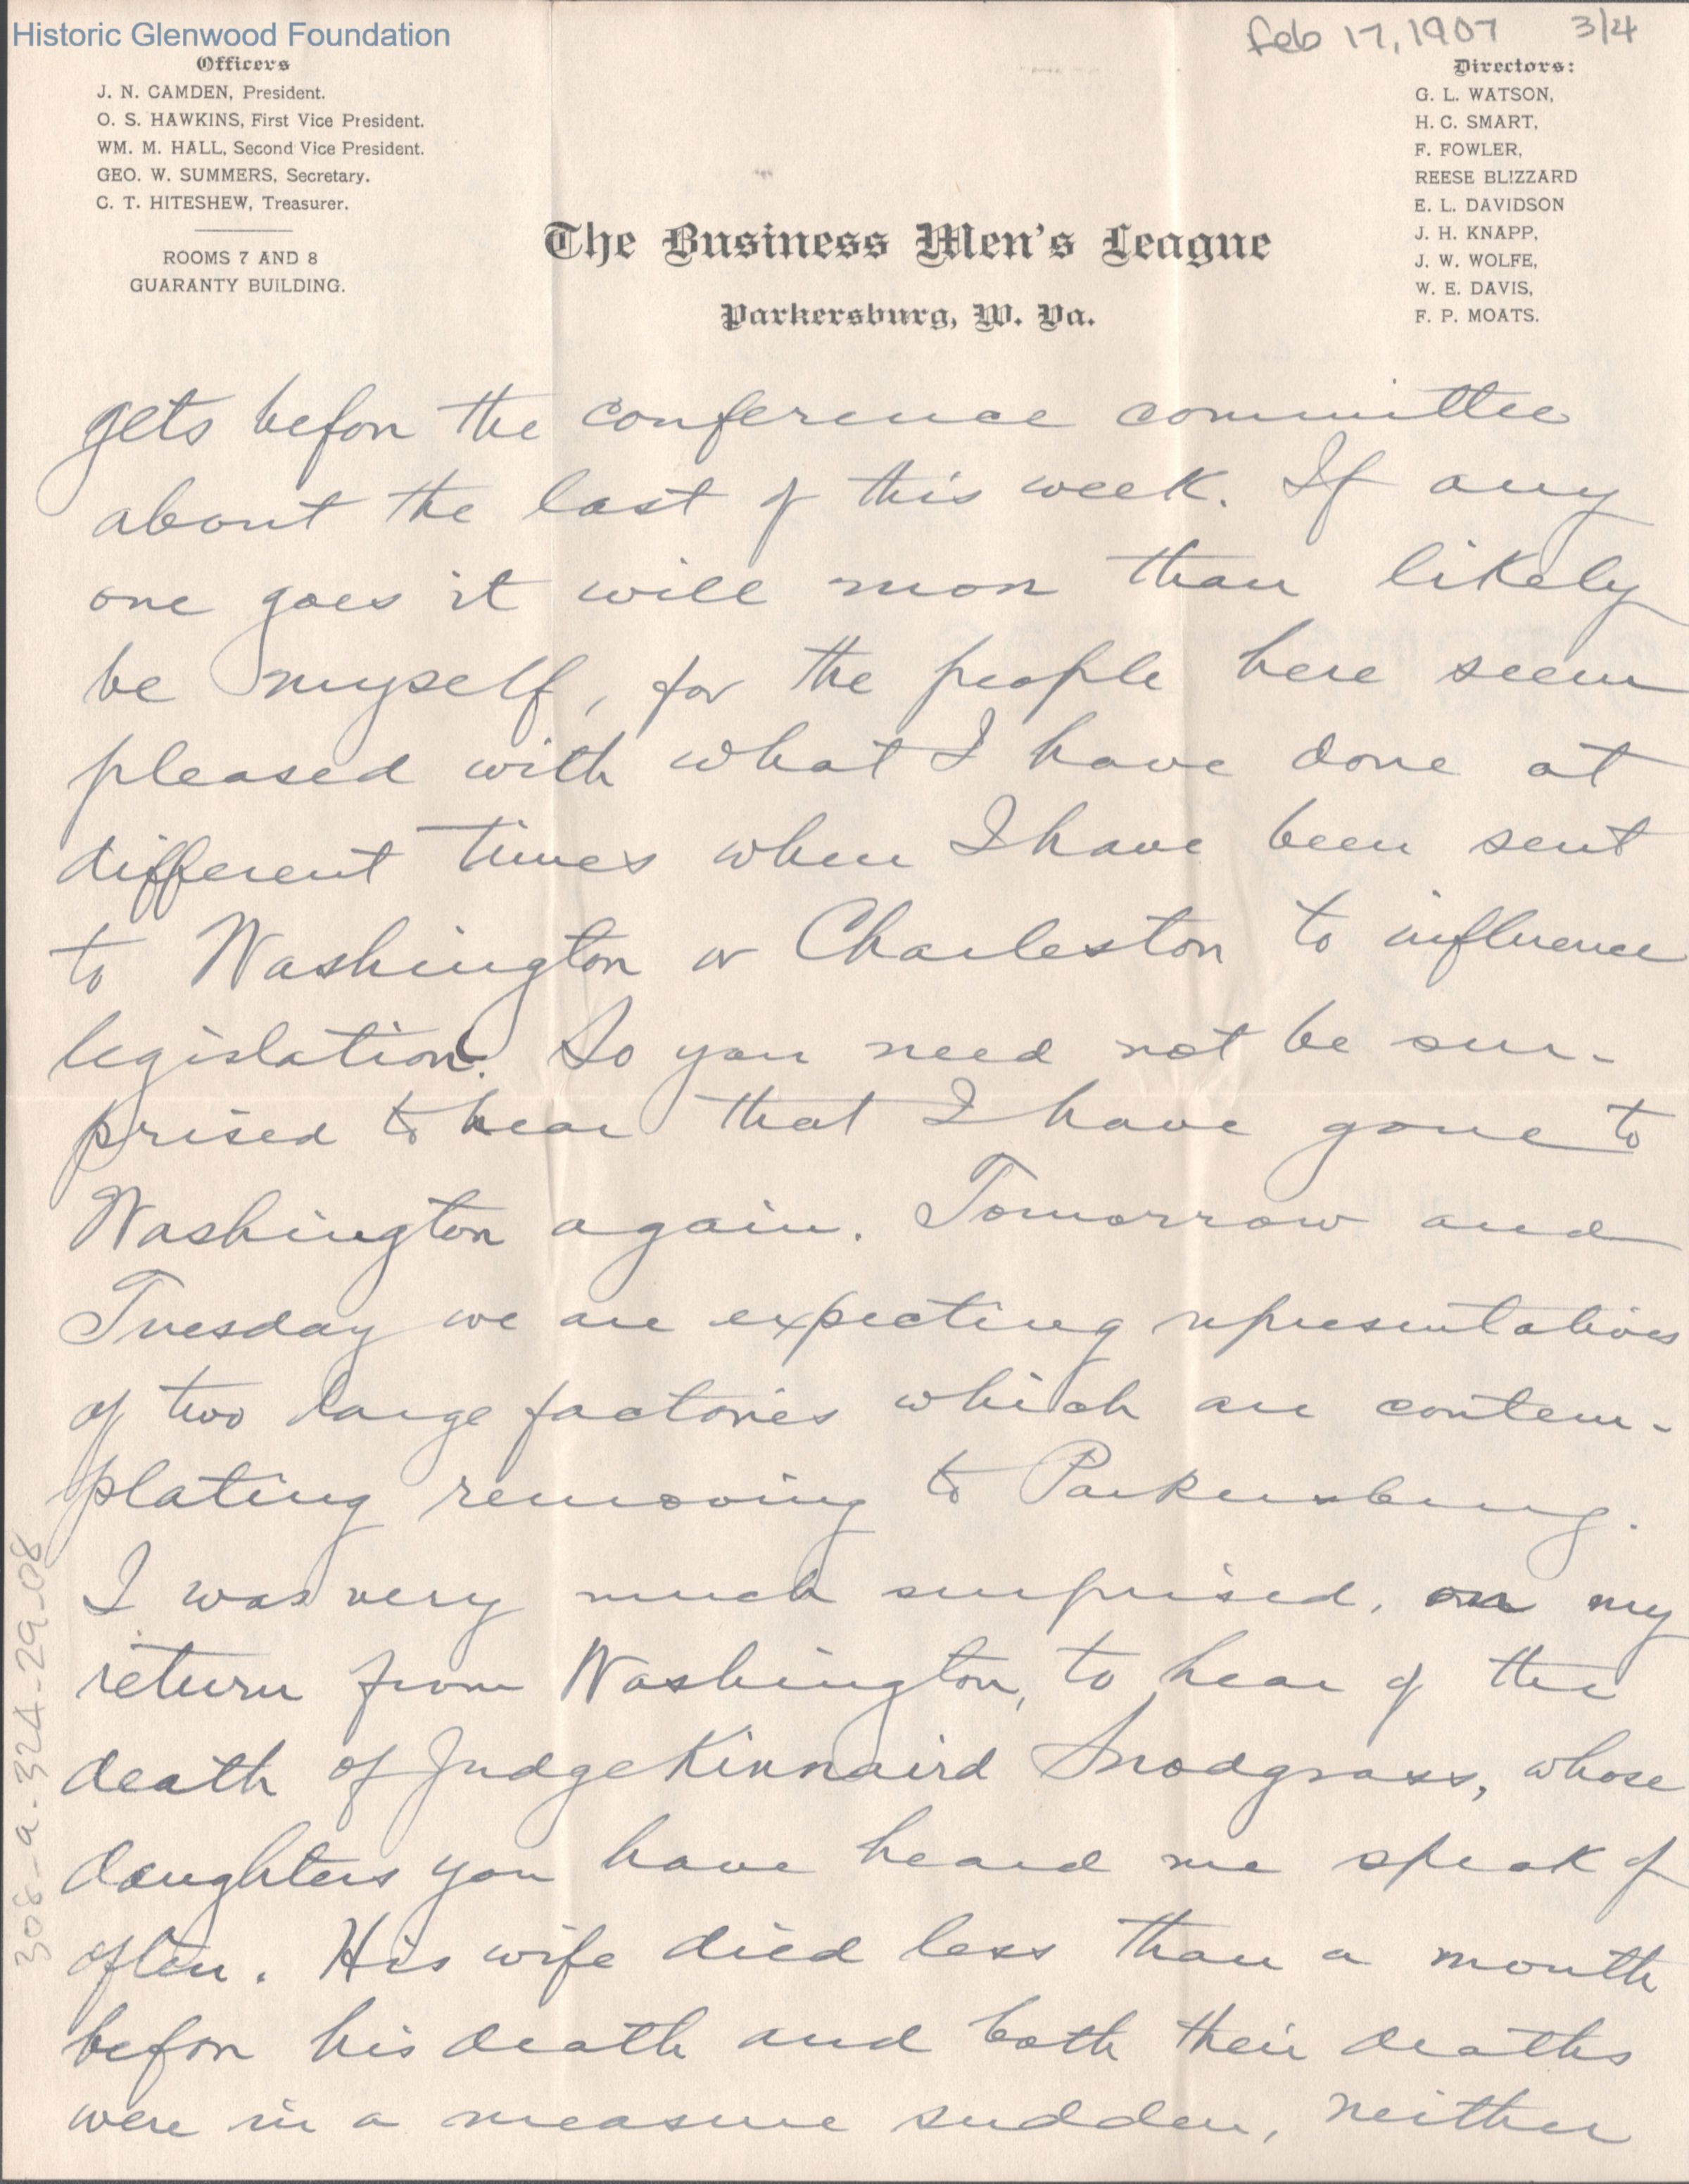 Historic Glenwood Foundation
Feb 17, 1907 3/4
Officers
J. N. CAMDEN, President.
O. S. HAWKINS, First Vice President.
WM. M. HALL, Second Vice President.
GEO. W. SUMMERS, Secretary.
C. T. HITESHEW, Treasurer.
ROOMS 7 AND 8
GUARANTY BUILDING.
The Business Men's League
Parkersburg, W. Va.
Directors:
G. L. WATSON,
H. C. SMART,
F. FOWLER,
REESE BLIZZARD
E. L. DAVIDSON
J. H. KNAPP,
J. W. WOLFE,
W. E. DAVIS,
F. P. MOATS.
gets before the conference committee
about the last of this week. If any
one goes it will more than likely
be myself, for the people here seem
pleased with what I have done at
different times when I have been sent
to Washington or Charleston to influence
legislation. So you need not be sur-
prised to hear that I have gone to
Washington again. Tomorrow and
Tuesday we are expecting representatives
of two large factories which are contem-
plating removing to Parkersburg.
I was very much surprised, on my
return from Washington, to hear of the
death of Judge Kinnaird Snodgrass, whose
daughters you have heard me speak of
often. His wife died less than a month
before his death and both their deaths
were in a measure sudden, neither
308-a-324-29-08